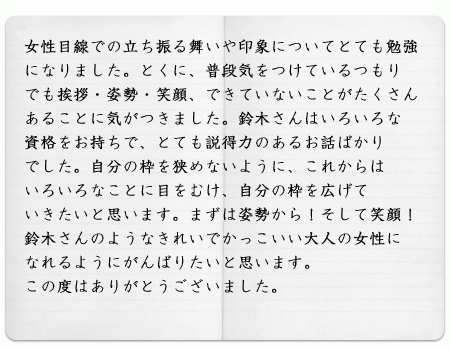 女性目線での立ち振る舞いや印象についてとても勉強
になりました。とくに、普段気をつけているつもり
でも挨拶・姿勢・笑顔、できていないことがたくさん
あることに気がつきました。鈴木さんはいろいろな
資格をお持ちで、とても説得力のあるお話ばかり
でした。自分の枠を狭めないように、これからは
いろいろなことに目をむけ、自分の枠を広げて
いきたいと思います。まずは姿勢から！そして笑顔！
鈴木さんのようなきれいでかっこいい大人の女性に
なれるようにがんばりたいと思います。
この度はありがとうございました。